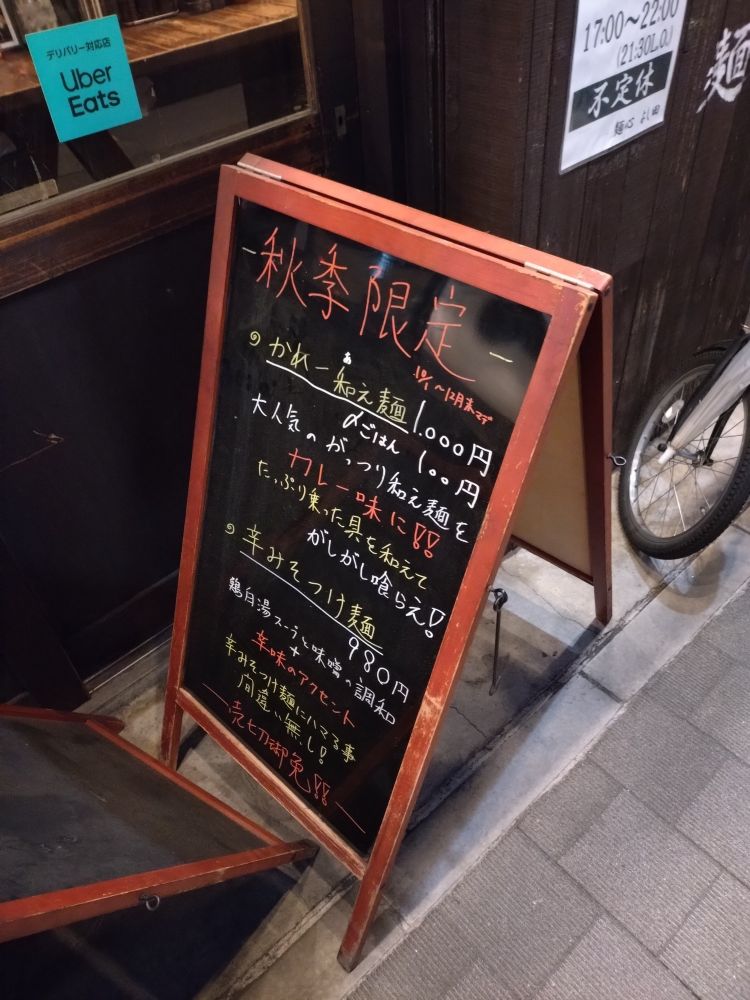 デリバリー対応店
Uber
Eats
17:00～22:00
(21:30L.O.)
不定休
麺心 よし田
麺
-秋季限定-
10/1～12月末まで
かれー和え麺 1.000円
あ
〆ごはん 100円
大人気のがっつり和え麺を
カレー味に!!
たっぷり乗った具を和えて
がしがし喰らえ!
辛みそつけ麺
980円
鶏白湯スープと味噌の調和
+
辛味のアクセント
辛みそつけ麺にハマる事
間違い無し!
売切御免!!